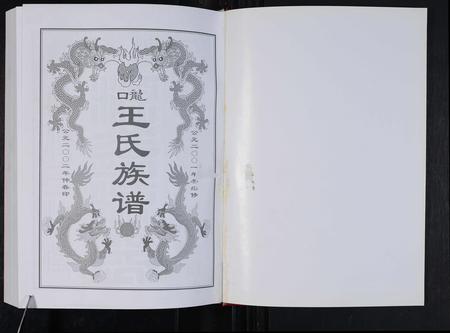 龍口
公元二〇〇一年冬修
王氏族谱
公元二〇〇二年仲春印